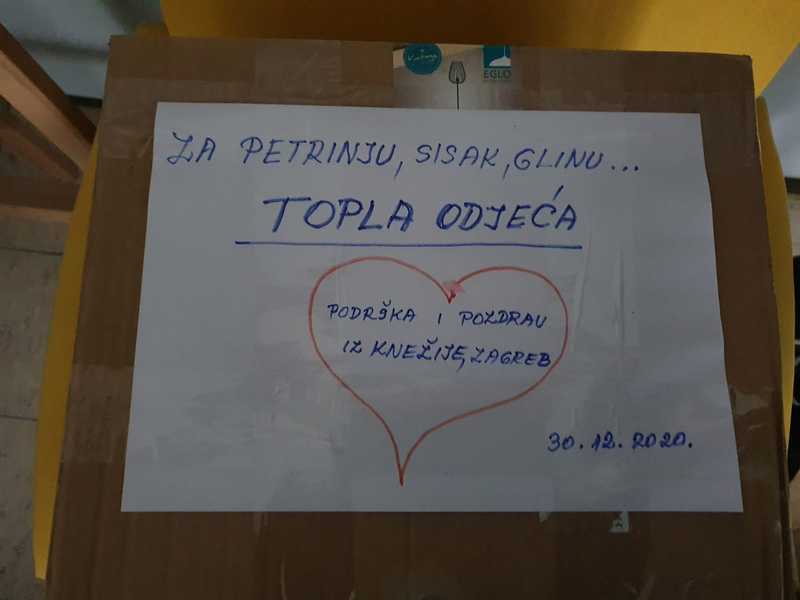 EGLO
ZA PETRINJU, SISAK, GLINU...
TOPLA ODJEĆA
PODRŠKA I POZDRAV
IZ KNEŽIJE, ZAGREB
30.12.2020.